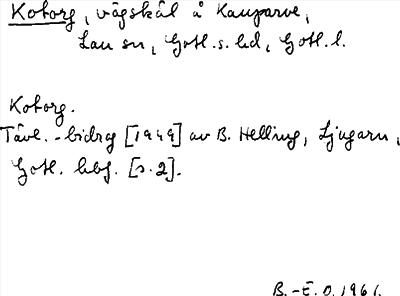 Koborg, vägskäl å Kauparve,
Lau sn, Gotl. s. hd, Gotl. l.
Koborg.
Tävl.-bidrag [1949] av B. Helling, Ljugarn,
Gotl. hbf. [s. 2].
B.-E. O. 1961.